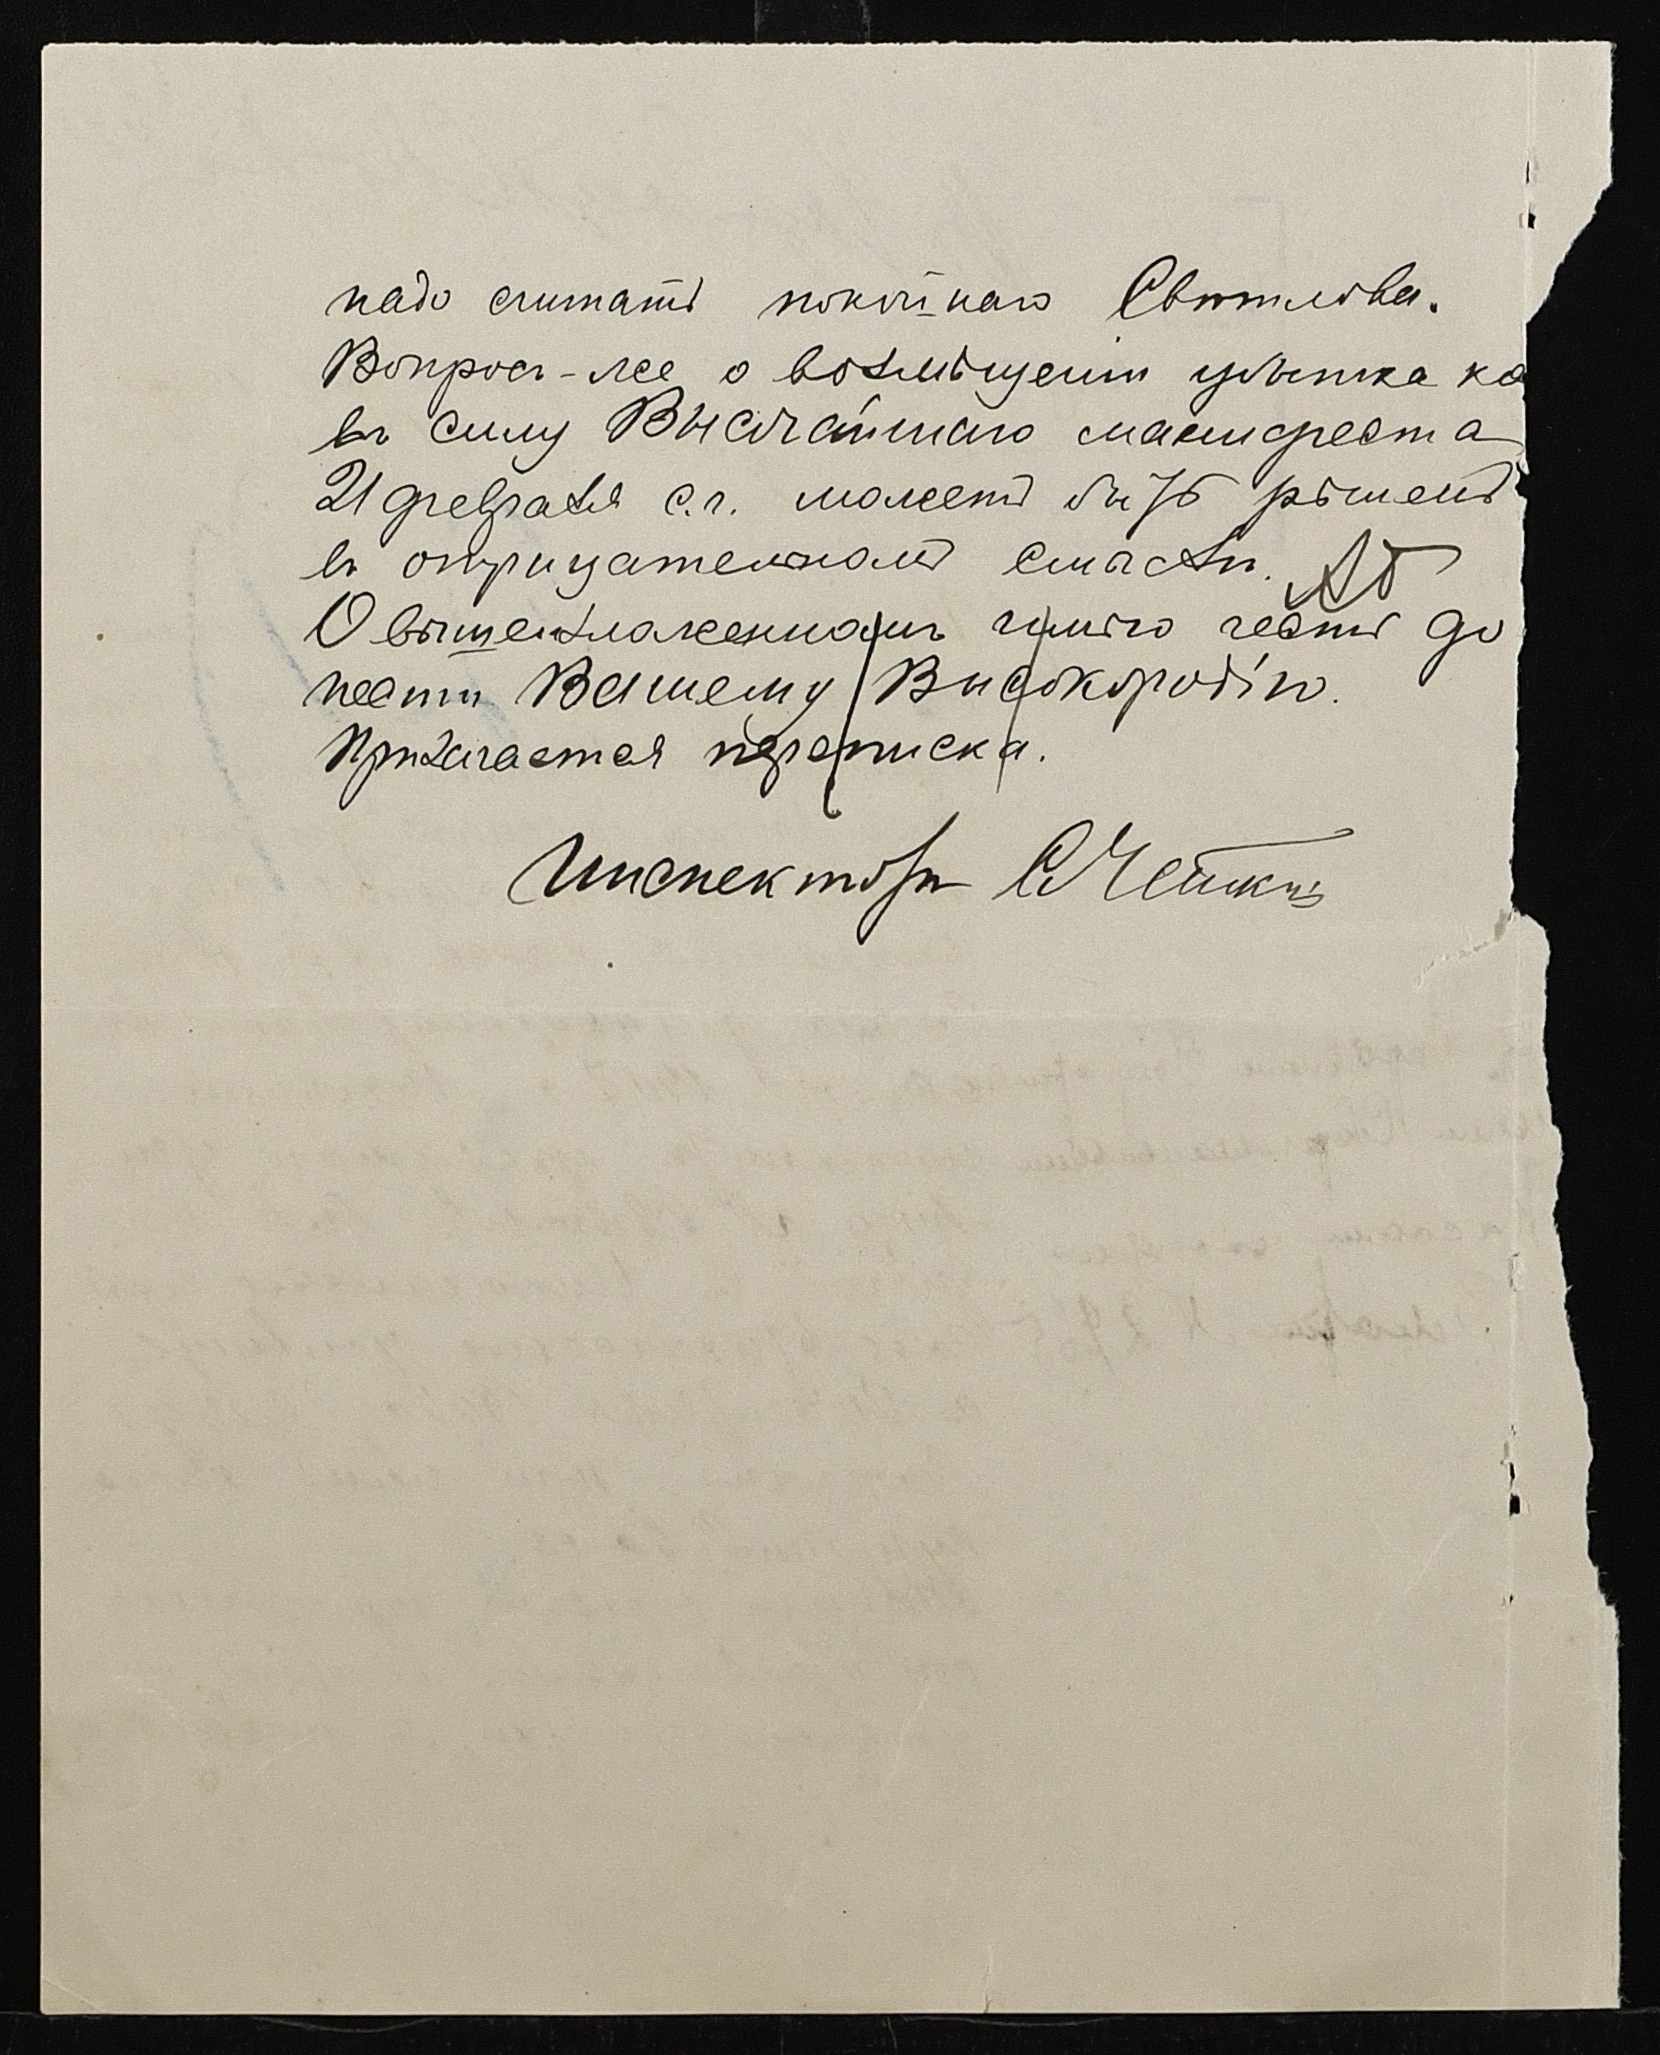 надо считать покойнаго Свѣтлова.
Вопросъ-же о возмѣщеніи убытка ка
въ силу Высочайшаго манифеста
21 февраля с.г. можетъ быть рѣшенъ
въ отрицательномъ смыслѣ.
О вышеизложенномъ имѣю честь до
нести Вашему Высокородію.
Прилагается переписка.
Инспекторъ